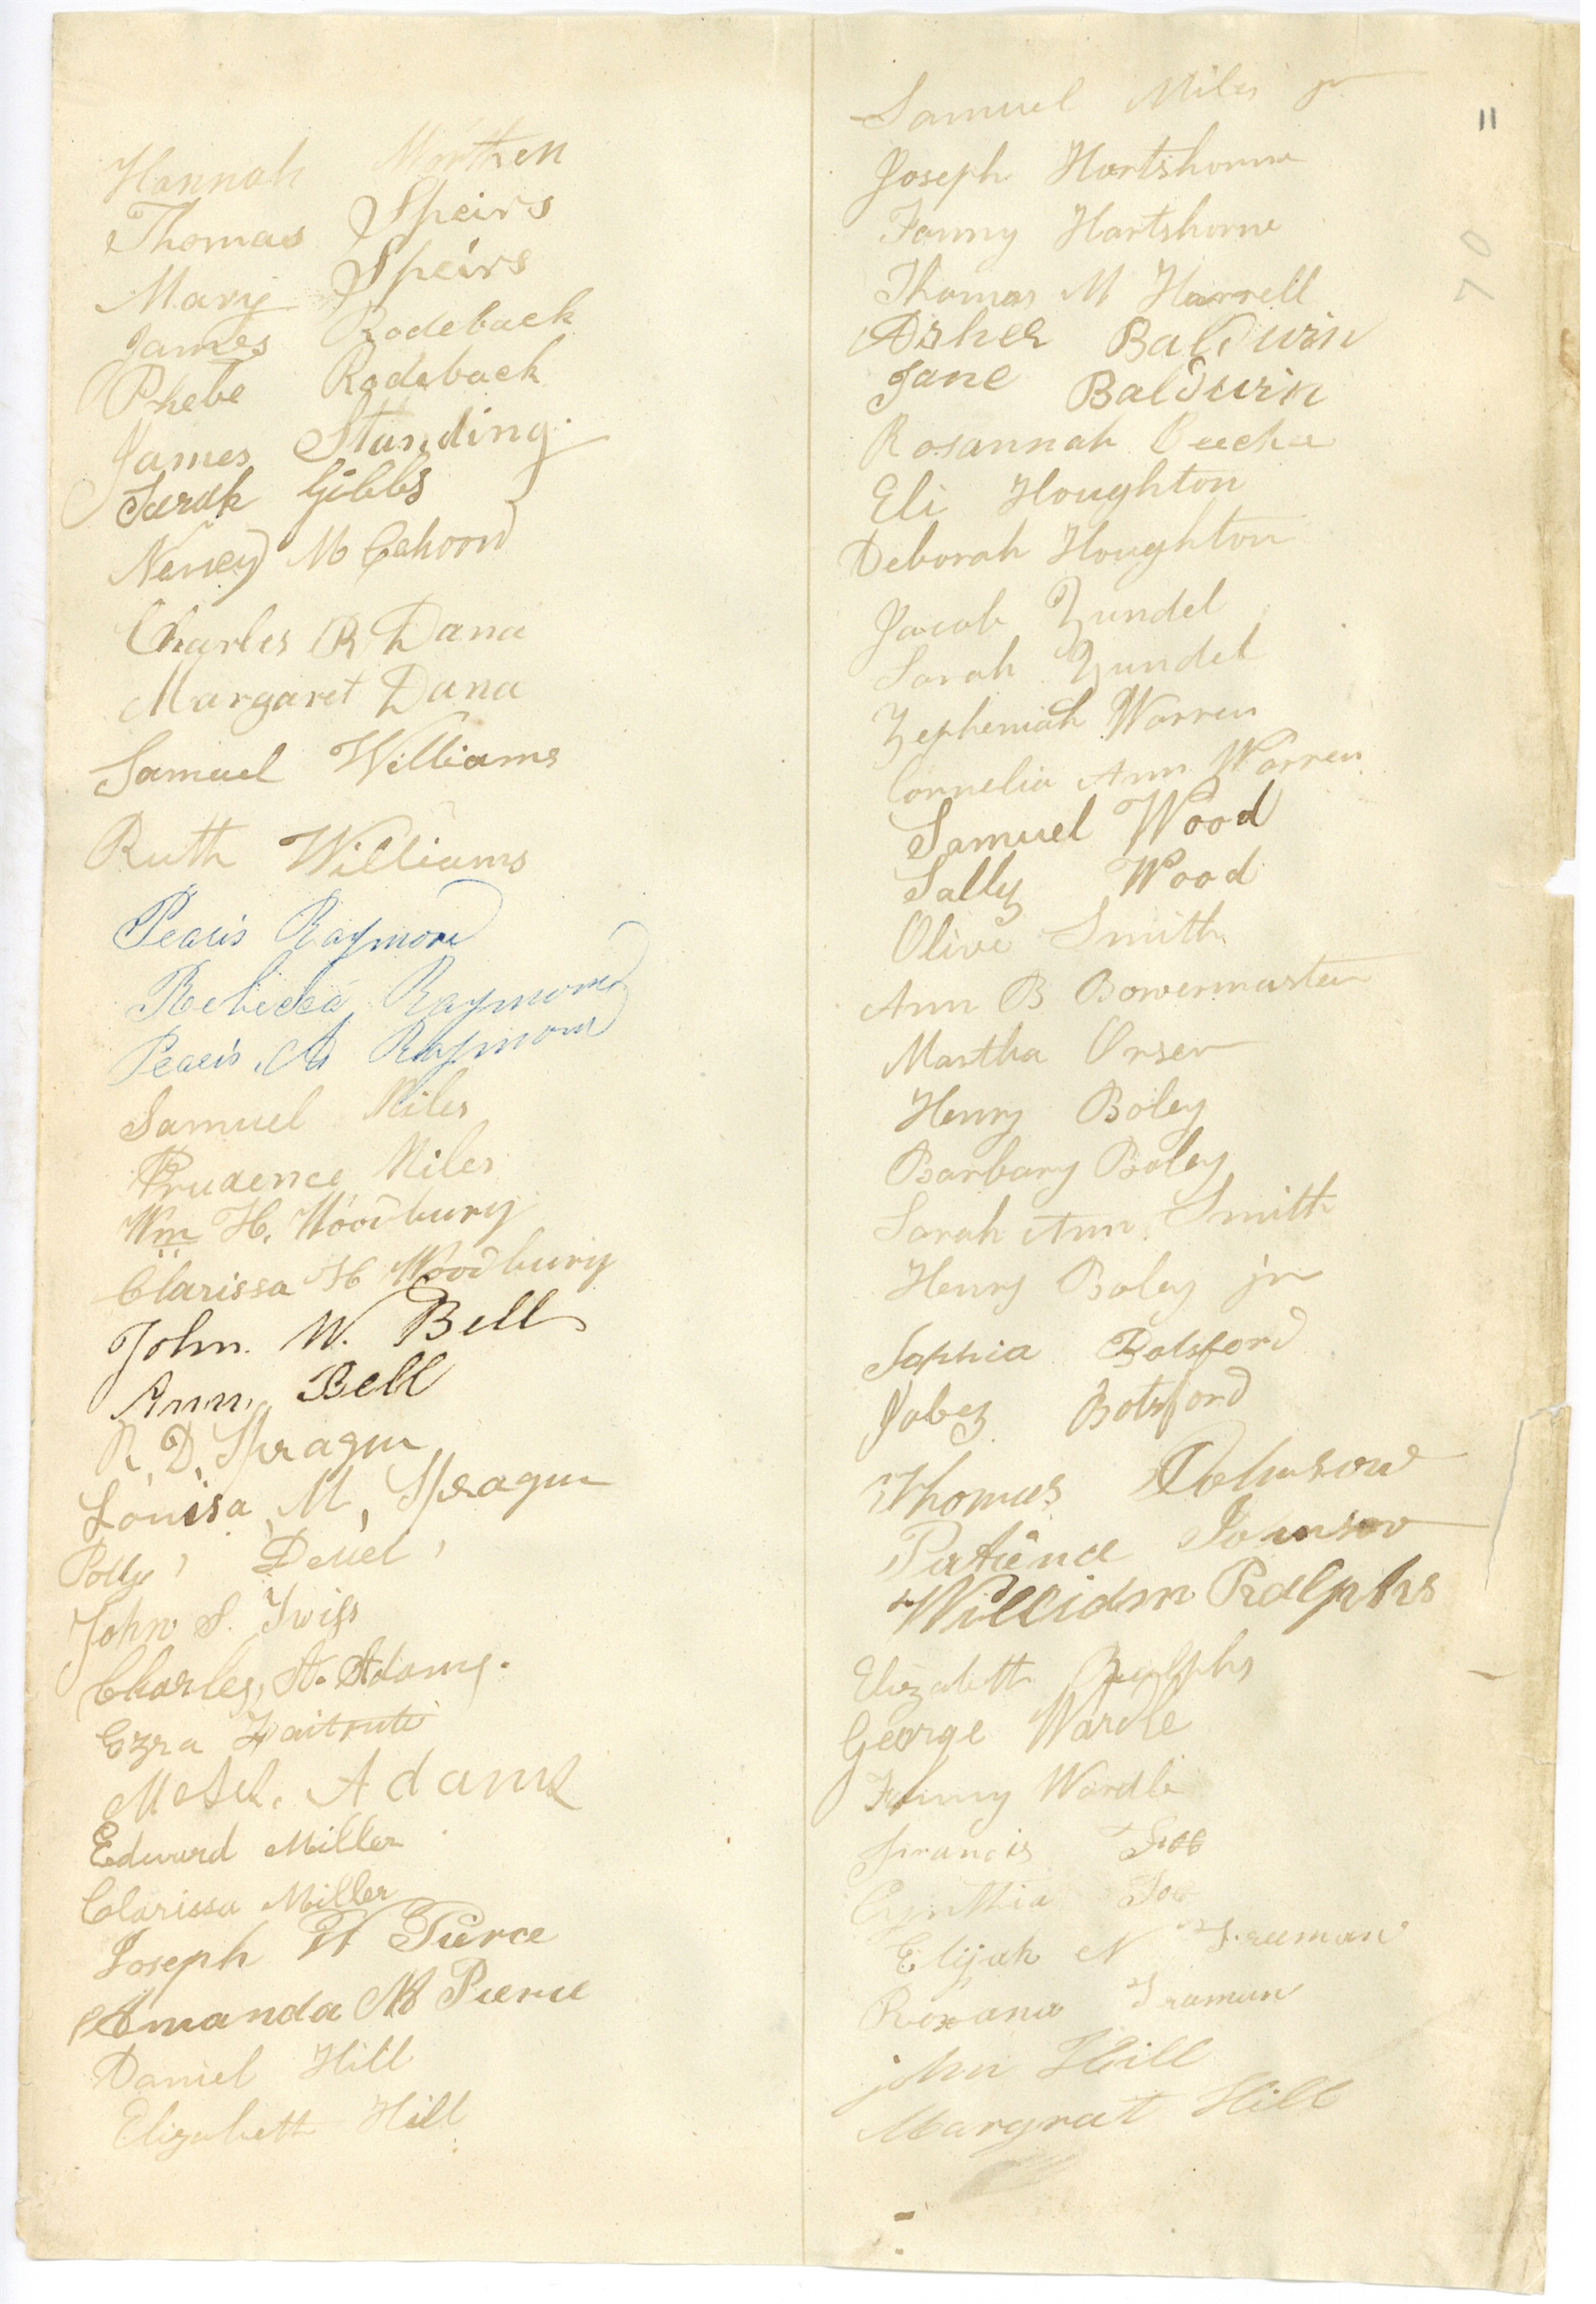 Hannah Morten
Thomas Speirs
Mary Speirs
James Rodeback
Phebe Rodeback
James Standing.
Sarah Gibbs
Nancy M Cahoon
Charles R Dana
Margaret Dana
Samuel Williams
Ruth Williams
Raymond
Rebecca Raymond
A Raymond
Samuel Miles
Prudence Miles
Wm H. Woodbury
Clarissa H Woodbury
John. W. Bell
Ann, Bell
R. D. Sprague
Louisa, M, Sprague
Polly Deuel
John S. Twiss
Charles, A. Adams.
Ezra
Adams
Edward Miller
Clarissa Miller
Joseph W Pierce
Amanda M Pierce
Daniel Hill
Elizabeth Hill
Samuel Miles jr
Joseph Hartshorne
Fanny Hartshorne
Thomas M Harrell
Asher Baldwin
Jane Baldwin
Rosannah
Eli Houghton
Deborah Houghton
Jacob Zundel
Sarah Zundel
Zepheniah Warren
Cornelia Ann Warren
Samuel Wood
Sally Wood
Olive Smith
Ann B Bowermaster
Martha Orser
Henry Boley
Barbary Boley
Sarah Ann Smith
Henry Boley jr
Sophia Botsford
Jabez Botsford
Thomas Johnson
Patience Jonson
William Ralphs
Elizabeth Ralphs
George Wardle
Fanny Wardle
Francis
Cynthia
Elijah N Freeman
Roxana Freman
john Hill
Margrat Hill
11
70